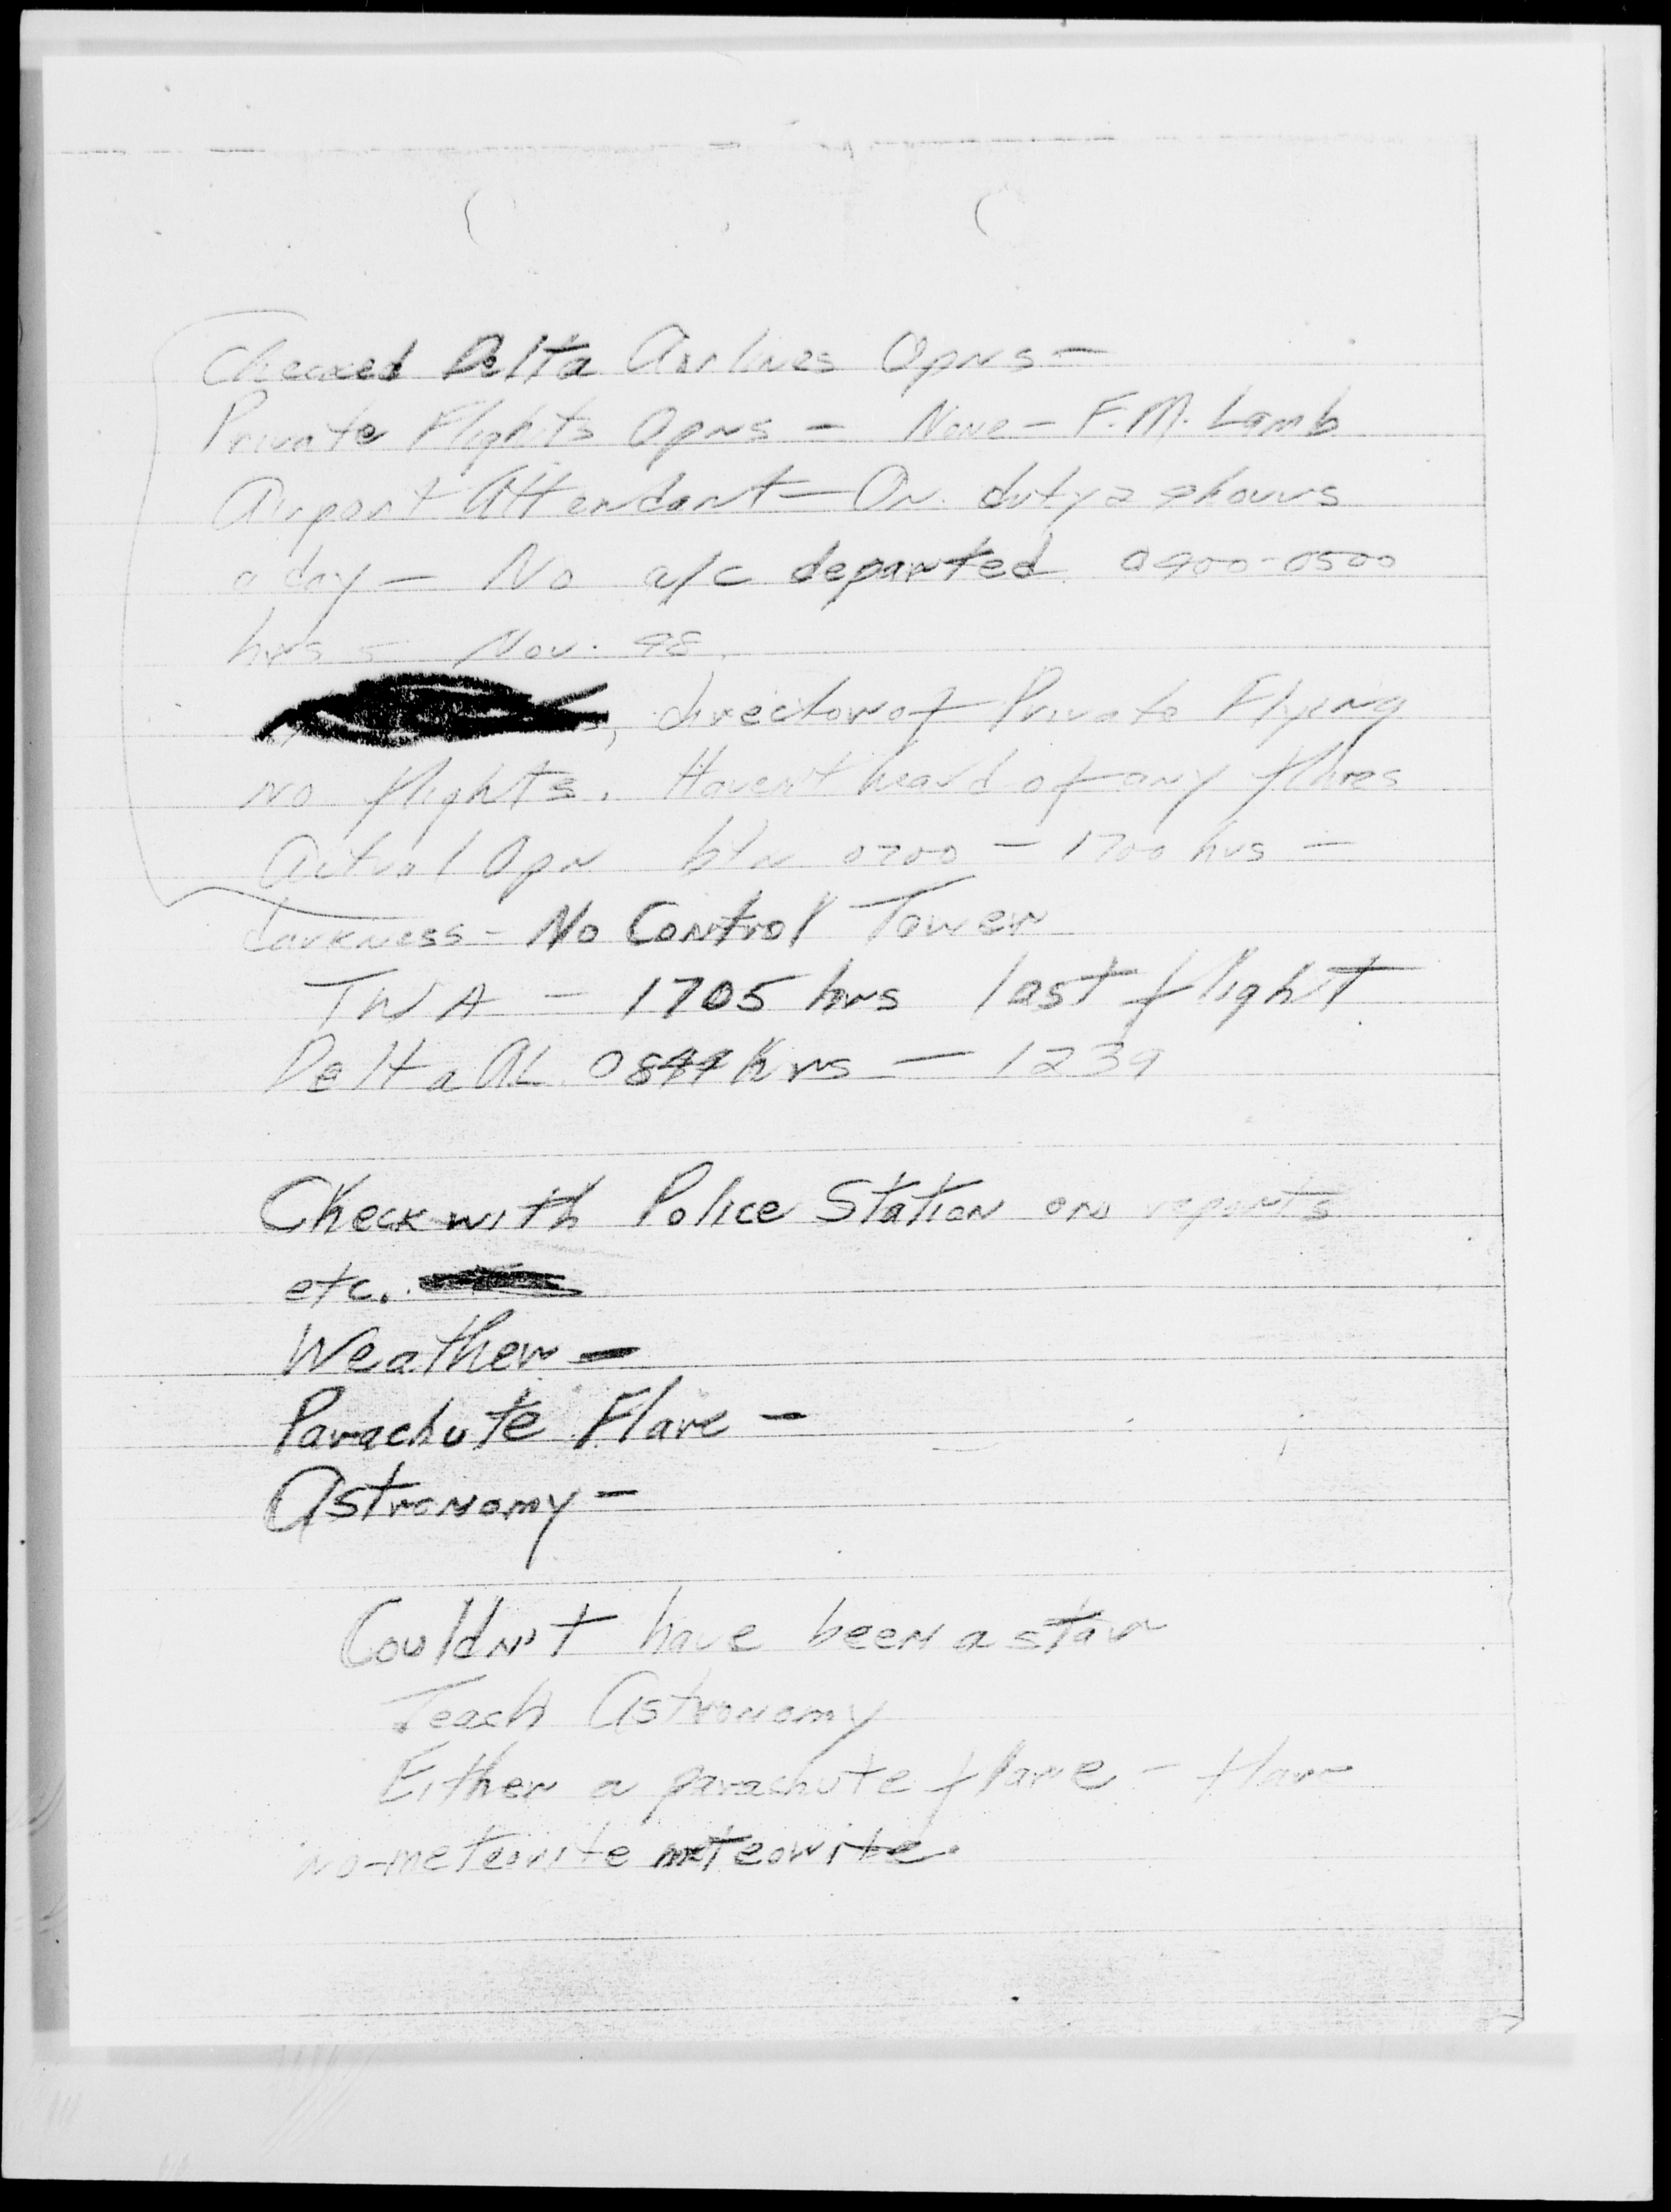 Checked Delta Airlines Opns —
Private Flights Opns — None — F.M. Lamb
Airport Attendant — On duty 24 hours
a day — No a/c departed 0400-0500
hrs — Nov.
, director of Private Flying
no flights. Haven't heard of any flares
Actual Opn btn 0700 — 1700 hrs —
darkness - No Control Tower
TWA — 1705 hrs last flight
Delta AL hrs — 1239
Check with Police Station on reports
etc.
Weather —
Parachute Flare —
Astronomy —
Couldn't have been a star
Teach Astronomy
Either a parachute flare - flare
no-meteorite meteorite.